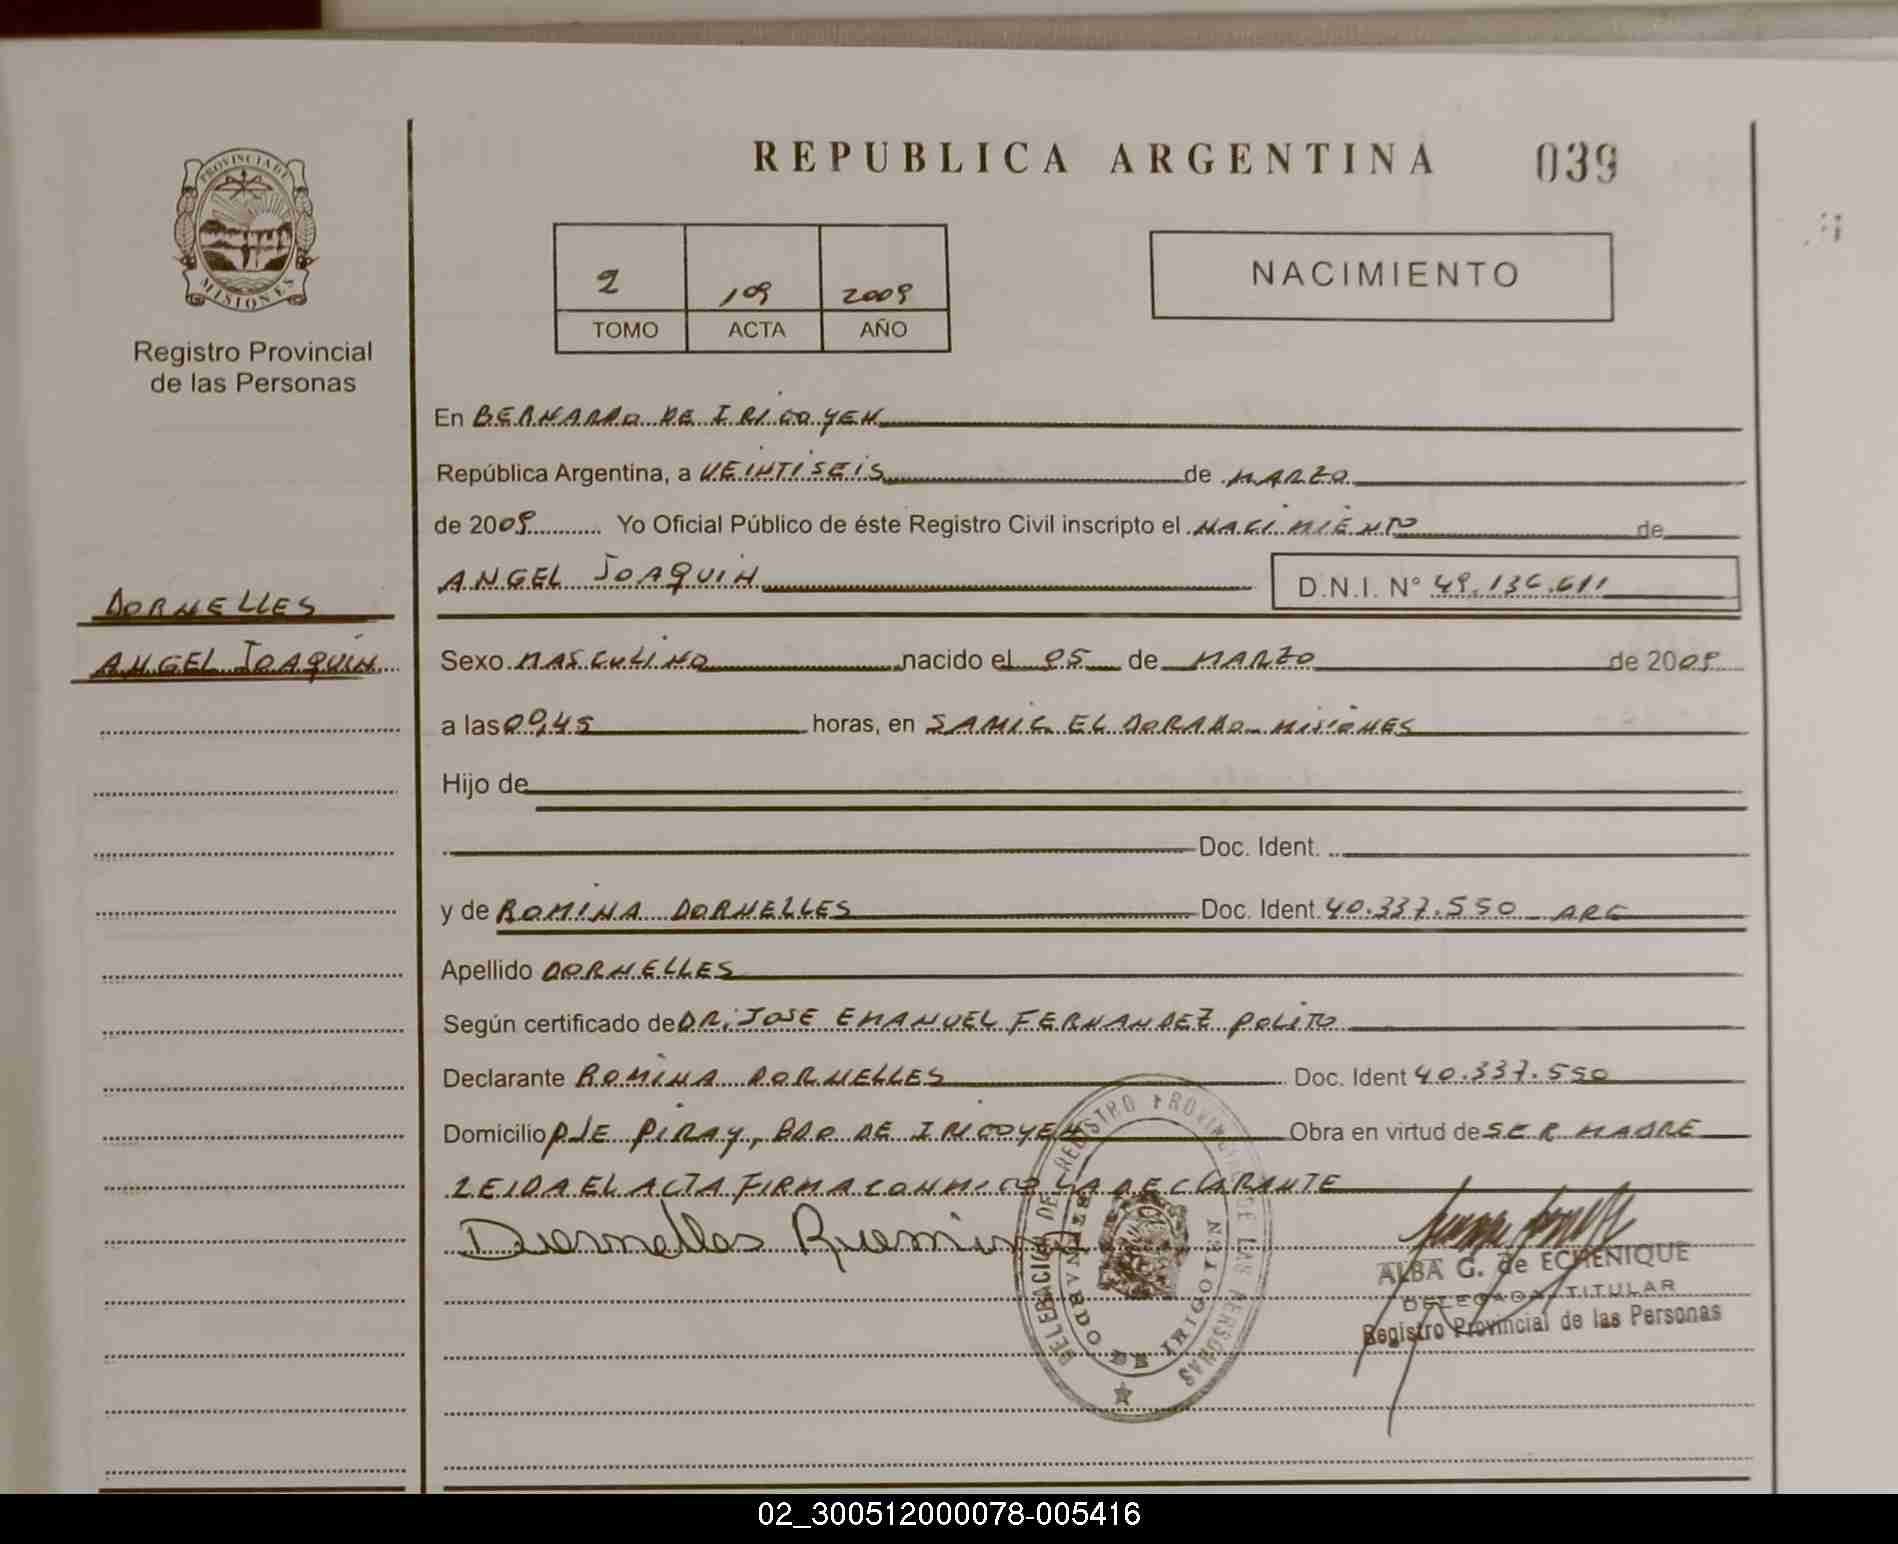 REPUBLICA ARGENTINA 039
PROVINCIA DE
MISIONES
Registro Provincial
de las Personas
2 109 2009
TOMO ACTA AÑO
NACIMIENTO
En BERNARDO DE IRIGOYEN
República Argentina, a VEINTISEIS de MARZO
de 2009 Yo Oficial Público de éste Registro Civil inscripto el NACIMIENTO de
ANGEL JOAQUIN D.N.I. N° 49.136.611
DORNELLES
ANGEL JOAQUIN
Sexo MASCULINO nacido el 05 de MARZO de 2009
a las 00,45 horas, en SAMIC EL DORADO - MISIONES
Hijo de
Doc. Ident.
y de ROMINA DORNELLES Doc. Ident. 40.337.550 - ARG
Apellido DORNELLES
Según certificado de DR. JOSE EMANUEL FERNANDEZ POLITO
Declarante ROMINA DORNELLES Doc. Ident 40.337.550
Domicilio PJE PIRAY, BDO DE IRIGOYEN Obra en virtud de SER MADRE
LEIDA EL ACTA FIRMA CONMIGO LA DECLARANTE
Dornelles Romina
ALBA G. de ECHENIQUE
DELEGADA TITULAR
Registro Provincial de las Personas
02_300512000078-005416